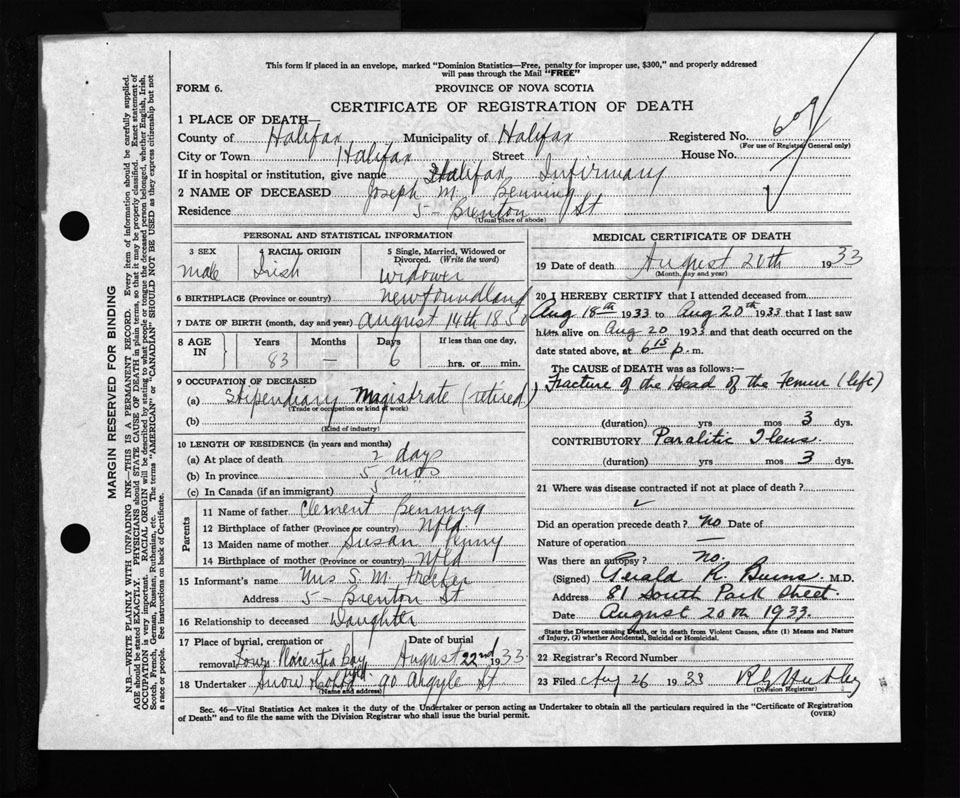 This form if placed in an envelope, marked "Dominion Statistics—Free, penalty for improper use, $300," and properly addressed
will pass through the Mail "FREE"
FORM 6.
PROVINCE OF NOVA SCOTIA
CERTIFICATE OF REGISTRATION OF DEATH
1 PLACE OF DEATH—
County of Halifax Municipality of Halifax Registered No.
(For use of Registrar General only)
City or Town Halifax Street House No.
If in hospital or institution, give name Halifax Infirmary
2 NAME OF DECEASED Joseph M. Benning
Residence 5 - Brenton St
(Usual place of abode)
PERSONAL AND STATISTICAL INFORMATION
3 SEX 4 RACIAL ORIGIN 5 Single, Married, Widowed or
Divorced. (Write the word)
male Irish widower
6 BIRTHPLACE (Province or country) Newfoundland
7 DATE OF BIRTH (month, day and year) August 14th 1850
8 AGE IN Years Months Days If less than one day,
83 — 6 hrs. or min.
9 OCCUPATION OF DECEASED
(a) Stipendiary Magistrate (retired)
(Trade or occupation or kind of work)
(b)
(Kind of industry)
10 LENGTH OF RESIDENCE (in years and months)
(a) At place of death 2 days
(b) In province 5 mos
(c) In Canada (if an immigrant) 5
Parents
11 Name of father Clement Benning
12 Birthplace of father (Province or country) Nfld.
13 Maiden name of mother Susan
14 Birthplace of mother (Province or country) Nfld
15 Informant's name Mrs S. M.
Address 5 - Brenton St
16 Relationship to deceased Daughter
17 Place of burial, cremation or Date of burial
removal Placentia Bay August 22nd 1933
Nfld
18 Undertaker Snow & Co 90 Argyle St
(Name and address)
MEDICAL CERTIFICATE OF DEATH
19 Date of death August 20th 1933
(Month, day and year)
20 I HEREBY CERTIFY that I attended deceased from
Aug 18th 1933 to Aug 20th 1933 that I last saw
him alive on Aug 20 1933 and that death occurred on the
date stated above, at 6 15 p. m.
The CAUSE of DEATH was as follows:
Fracture of the Head of the Femur (left)
(duration) yrs mos 3 dys.
CONTRIBUTORY Paralitic Ileus.
(duration) yrs mos 3 dys.
21 Where was disease contracted if not at place of death?
Did an operation precede death? no Date of
Nature of operation —
Was there an autopsy? no.
(Signed) Gerald R. Burns. M.D.
Address 81 South Park Street.
Date August 20th 1933.
State the Disease causing Death, or in death from Violent Causes, state (1) Means and
Nature of Injury, (2) whether Accidental, Suicidal or Homicidal.
22 Registrar's Record Number
23 Filed Aug 26 1933
(Division Registrar)
Sec. 46—Vital Statistics Act makes it the duty of the Undertaker or person acting as Undertaker to obtain all the particulars required in the "Certificate of Registration
of Death" and to file the same with the Division Registrar who shall issue the burial permit.
(OVER)
MARGIN RESERVED FOR BINDING
N.B.—WRITE PLAINLY WITH UNFADING INK—THIS IS A PERMANENT RECORD. Every item of information should be carefully supplied.
AGE should be stated EXACTLY. PHYSICIANS should STATE CAUSE OF DEATH in plain terms, so that it may be properly classified. Exact statement of
OCCUPATION is very important. RACIAL ORIGIN will be described by stating to what people or tongue the deceased person belonged, whether English, Irish,
Scotch, French, German, Russian, Ruthenian, etc. The terms "AMERICAN" or "CANADIAN" SHOULD NOT BE USED as they express citizenship but not
a race or people. See instructions on back of Certificate.